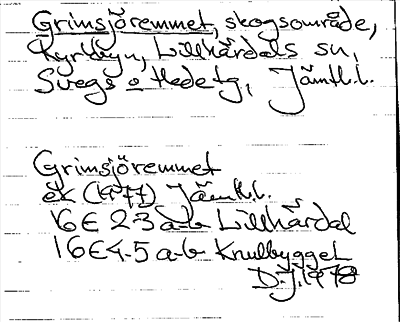 Grimsjöremmet, skogsområde,
Kyrkbyn, Lillhärdals sn,
Svegs o Hedetg, Jämtl.l.
Grimsjöremmet
ek (1977) Jämtl.l.
16E 2-3 a-b Lillhärdal
16E 4-5 a-b Knulbygget
D.J. 1978